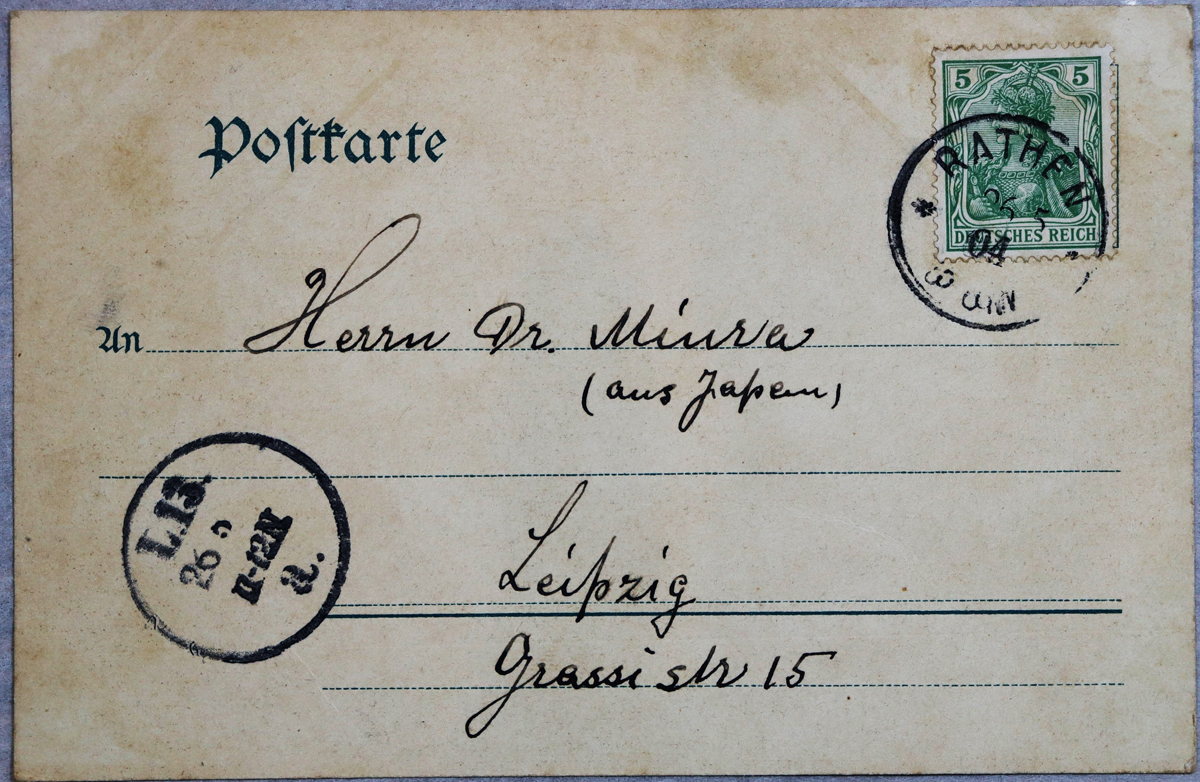 Postkarte
5 5
DEUTSCHES REICH
RATHEN
26 5
04
8 8 N
An Herrn Dr. Miura
(aus Japan)
L.13.
26 5
11-12N
a.
Leipzig
Grassistr 15